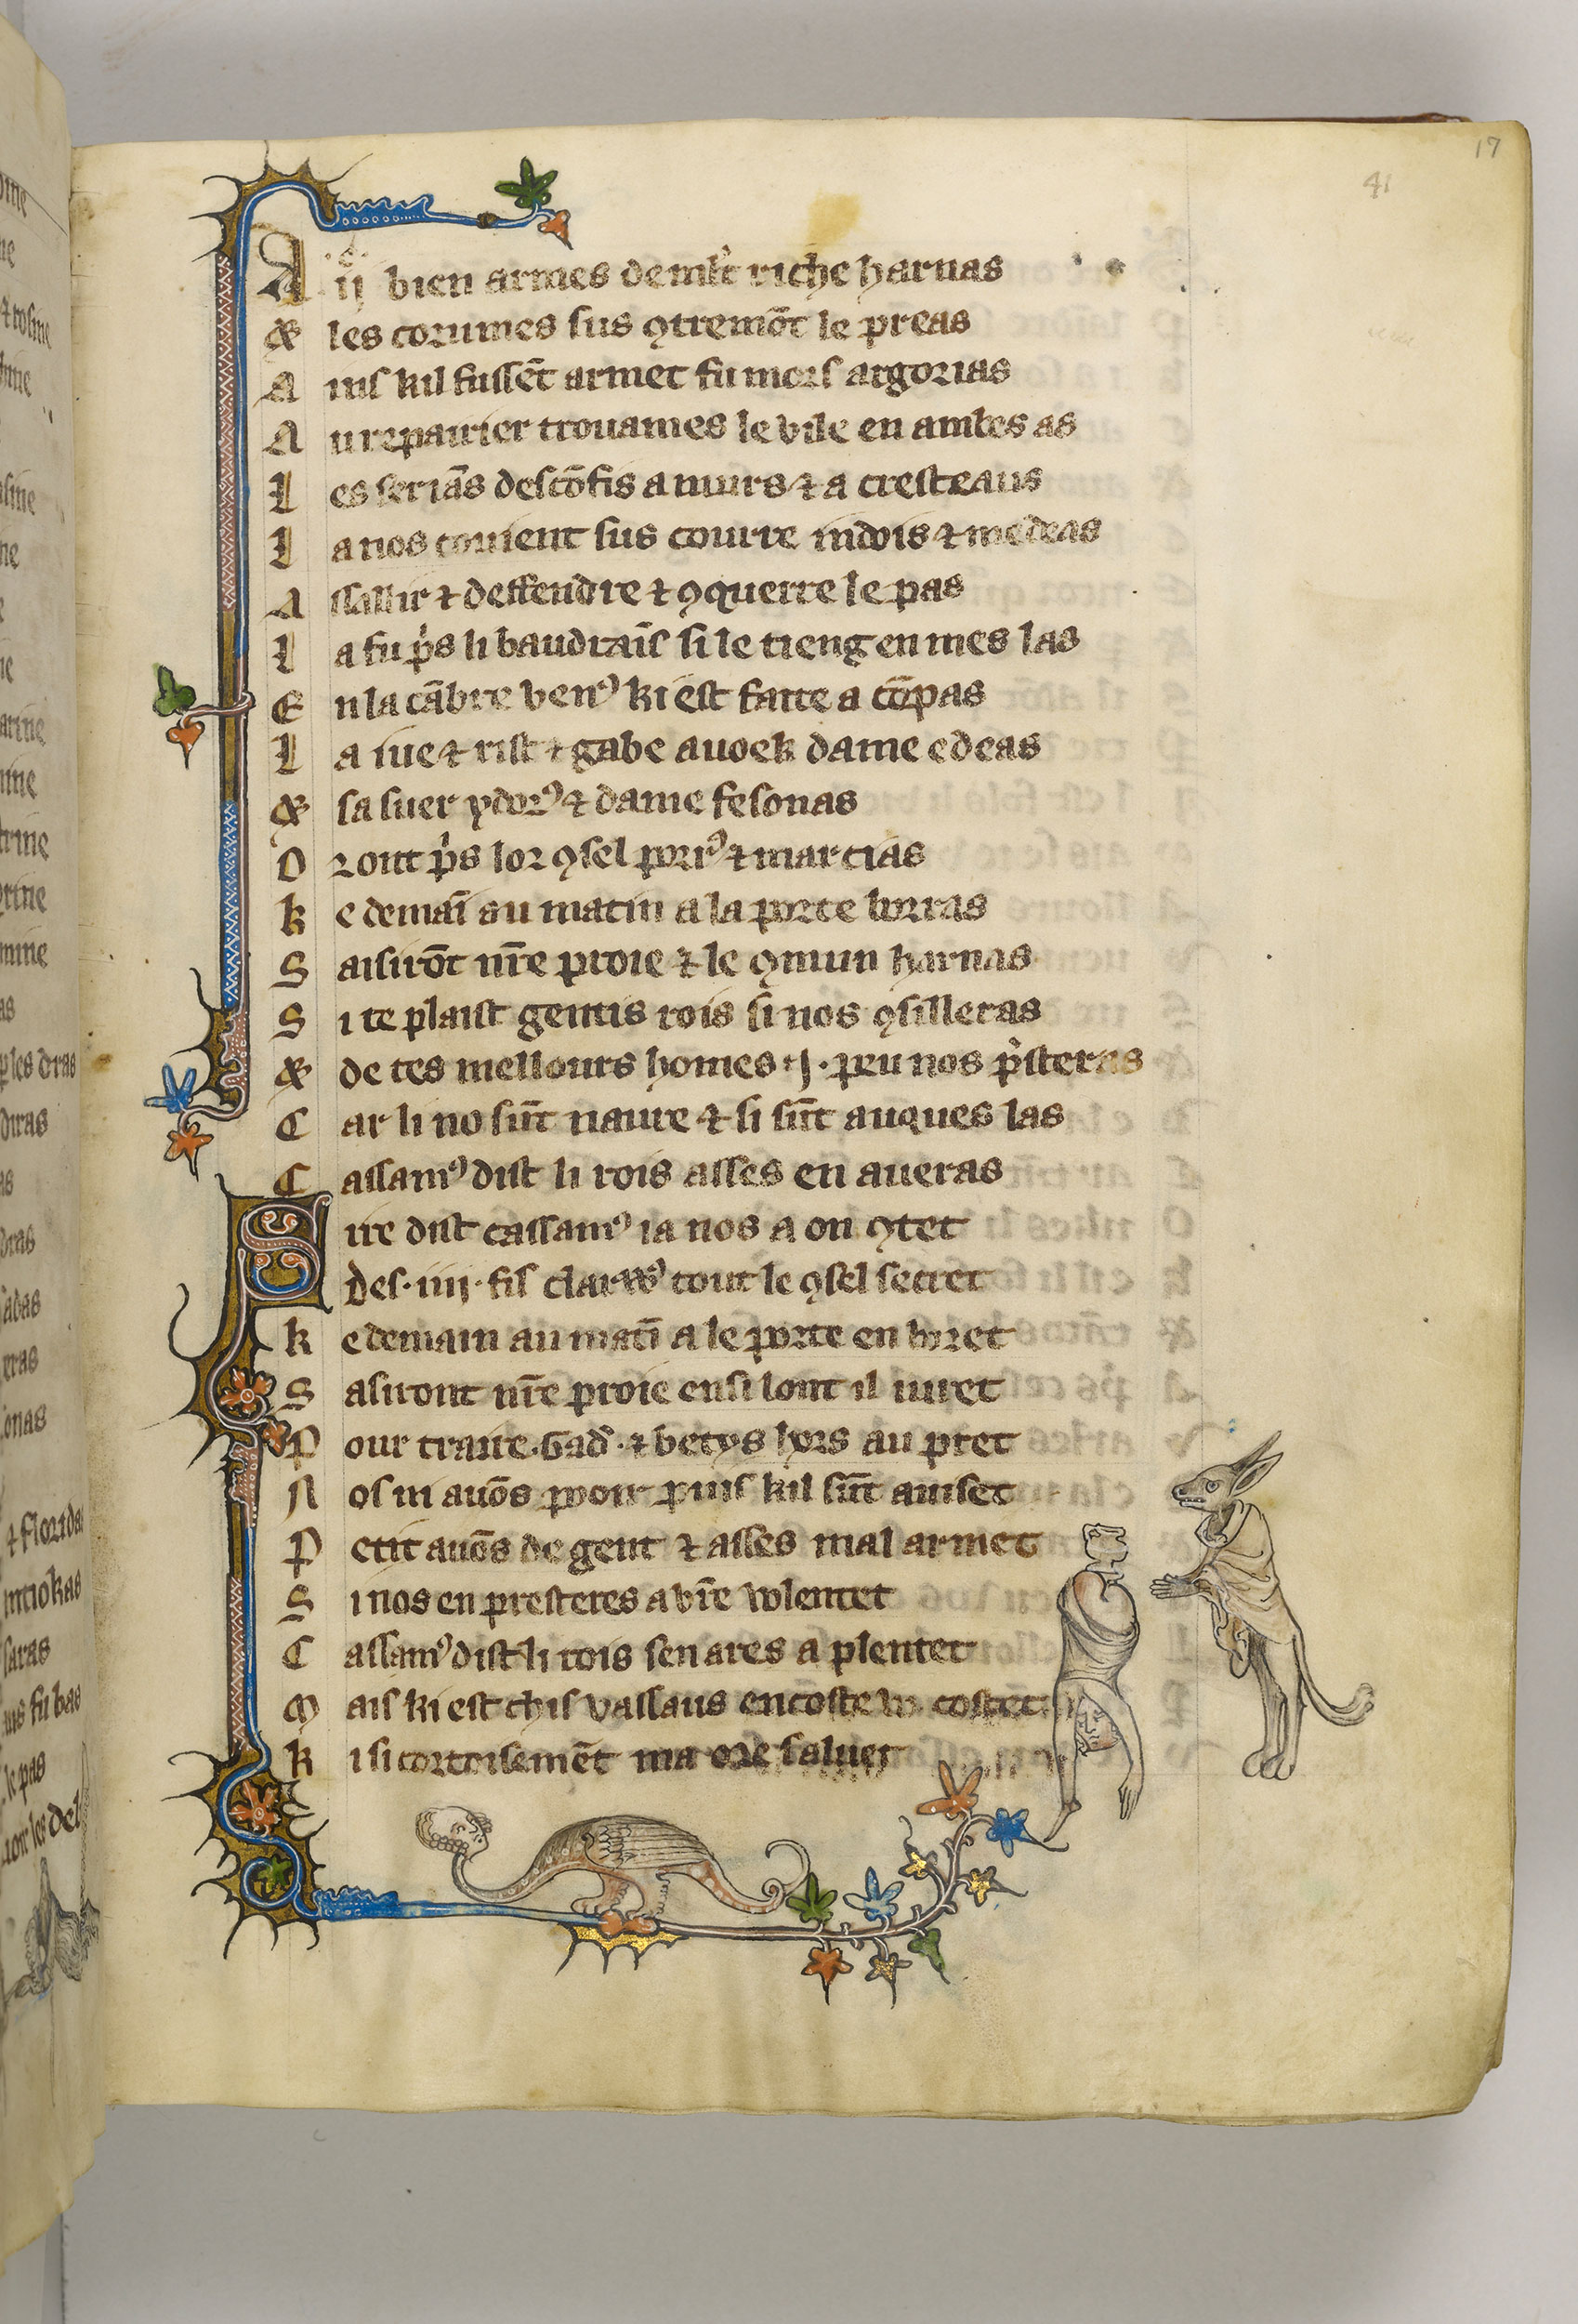 17
41
A ij bien armes de ml't riche harnas
& les corumes sus ꝯtremōt le preas
A ins kil fussēt armet fu mors argorias
A u repairier trouames le vile en ambes as
L es seriās descōfis a murs ⁊ a cresteaus
L a nos couient sus courre indois ⁊ medeas
A ssallir ⁊ deffendre ⁊ ꝯquerre le pas
L a fu p̓s li baudraīs si le tieng en mes las
E n la cābre venꝰ ki est faite a cōpas
L a iue ⁊ rist ⁊ gabe auoek dame edeas
& sa suer ydorꝰ ⁊ dame fesonas
O r ont p̓s lor ꝯsel porrꝰ ⁊ marcias
K e demaī au matin a la porte borras
S aisirōt nr̄e proie ⁊ le ꝯmun harnas
S i te plaist gentis rois si nos ꝯsilleras
& de tes mellours homes .j. peu nos p̓steras
C ar li no sūt naure ⁊ si sūt auques las
C assamꝰ dist li rois asses en aueras
S ire dist cassamꝰ ia nos a on ꝯtet
des .iiij. fil' clarꝰ tout le ꝯsel secret
K e demain au matī a le porte en boret
S asiront nr̄e proie ensi lont il iuret
P our traire .Gad'. ⁊ betys hors au pret
N os ni auōs pooir puis kil sūt auiset
P etit auōs de gent ⁊ asses mal armet
S i nos en presteres a vr̄e volentet
C assamꝰ dist li rois sen ares a plentet
M ais ki est chis vassaus encoste vo costet
K i si cortoisemēt ma ore saluet